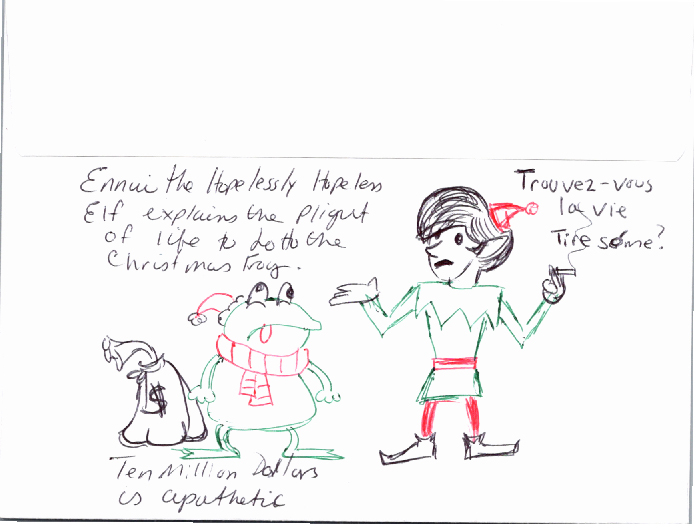 Ennui the Hopelessly Hopeless
Elf explains the Plight
of life to Lotto the
Christmas Frog.
Trouvez-vous
la vie
Tiresome?
$
Ten Million Dollars
is apathetic